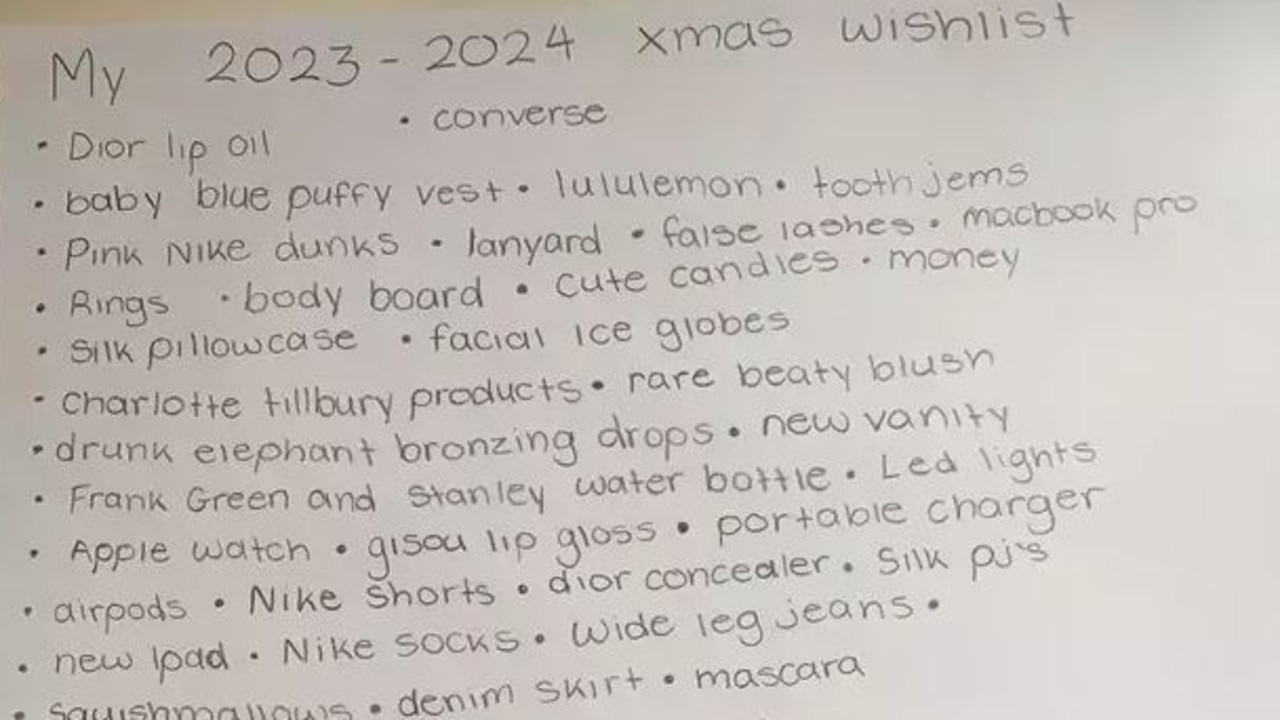 My 2023-2024 xmas wishlist
• converse
• Dior lip oil
• baby blue puffy vest • lululemon • tooth jems
• Pink Nike dunks • lanyard • false lashes • macbook pro
• Rings • body board • cute candles • money
• Silk pillowcase • facial ice globes
• charlotte tillbury products • rare beaty blush
• drunk elephant bronzing drops • new vanity
• Frank Green and Stanley water bottle • Led lights
• Apple watch • gisou lip gloss • portable charger
• airpods • Nike shorts • dior concealer • Silk pj's
• new Ipad • Nike socks • Wide leg jeans •
• squishmallows • denim skirt • mascara